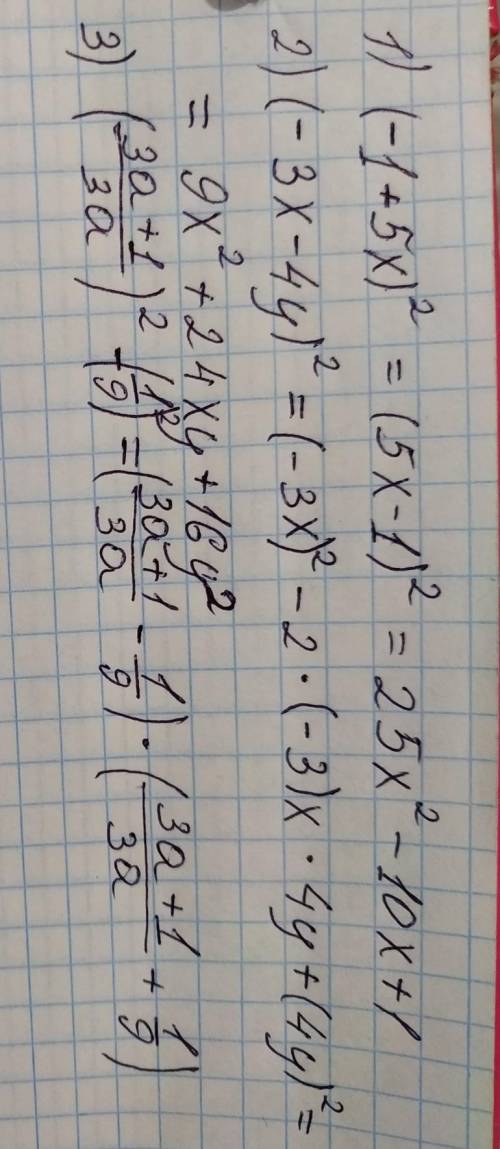 1) (-1+5x)² = (5x-1)² = 25x² - 10x + 1
2) (-3x-4y)² = (-3x)² - 2·(-3)x·4y + (4y)² =
= 9x² + 24xy + 16y²
3) ((3a+1)/3a)² - (1/9)² = ((3a+1)/3a - 1/9)·((3a+1)/3a + 1/9)